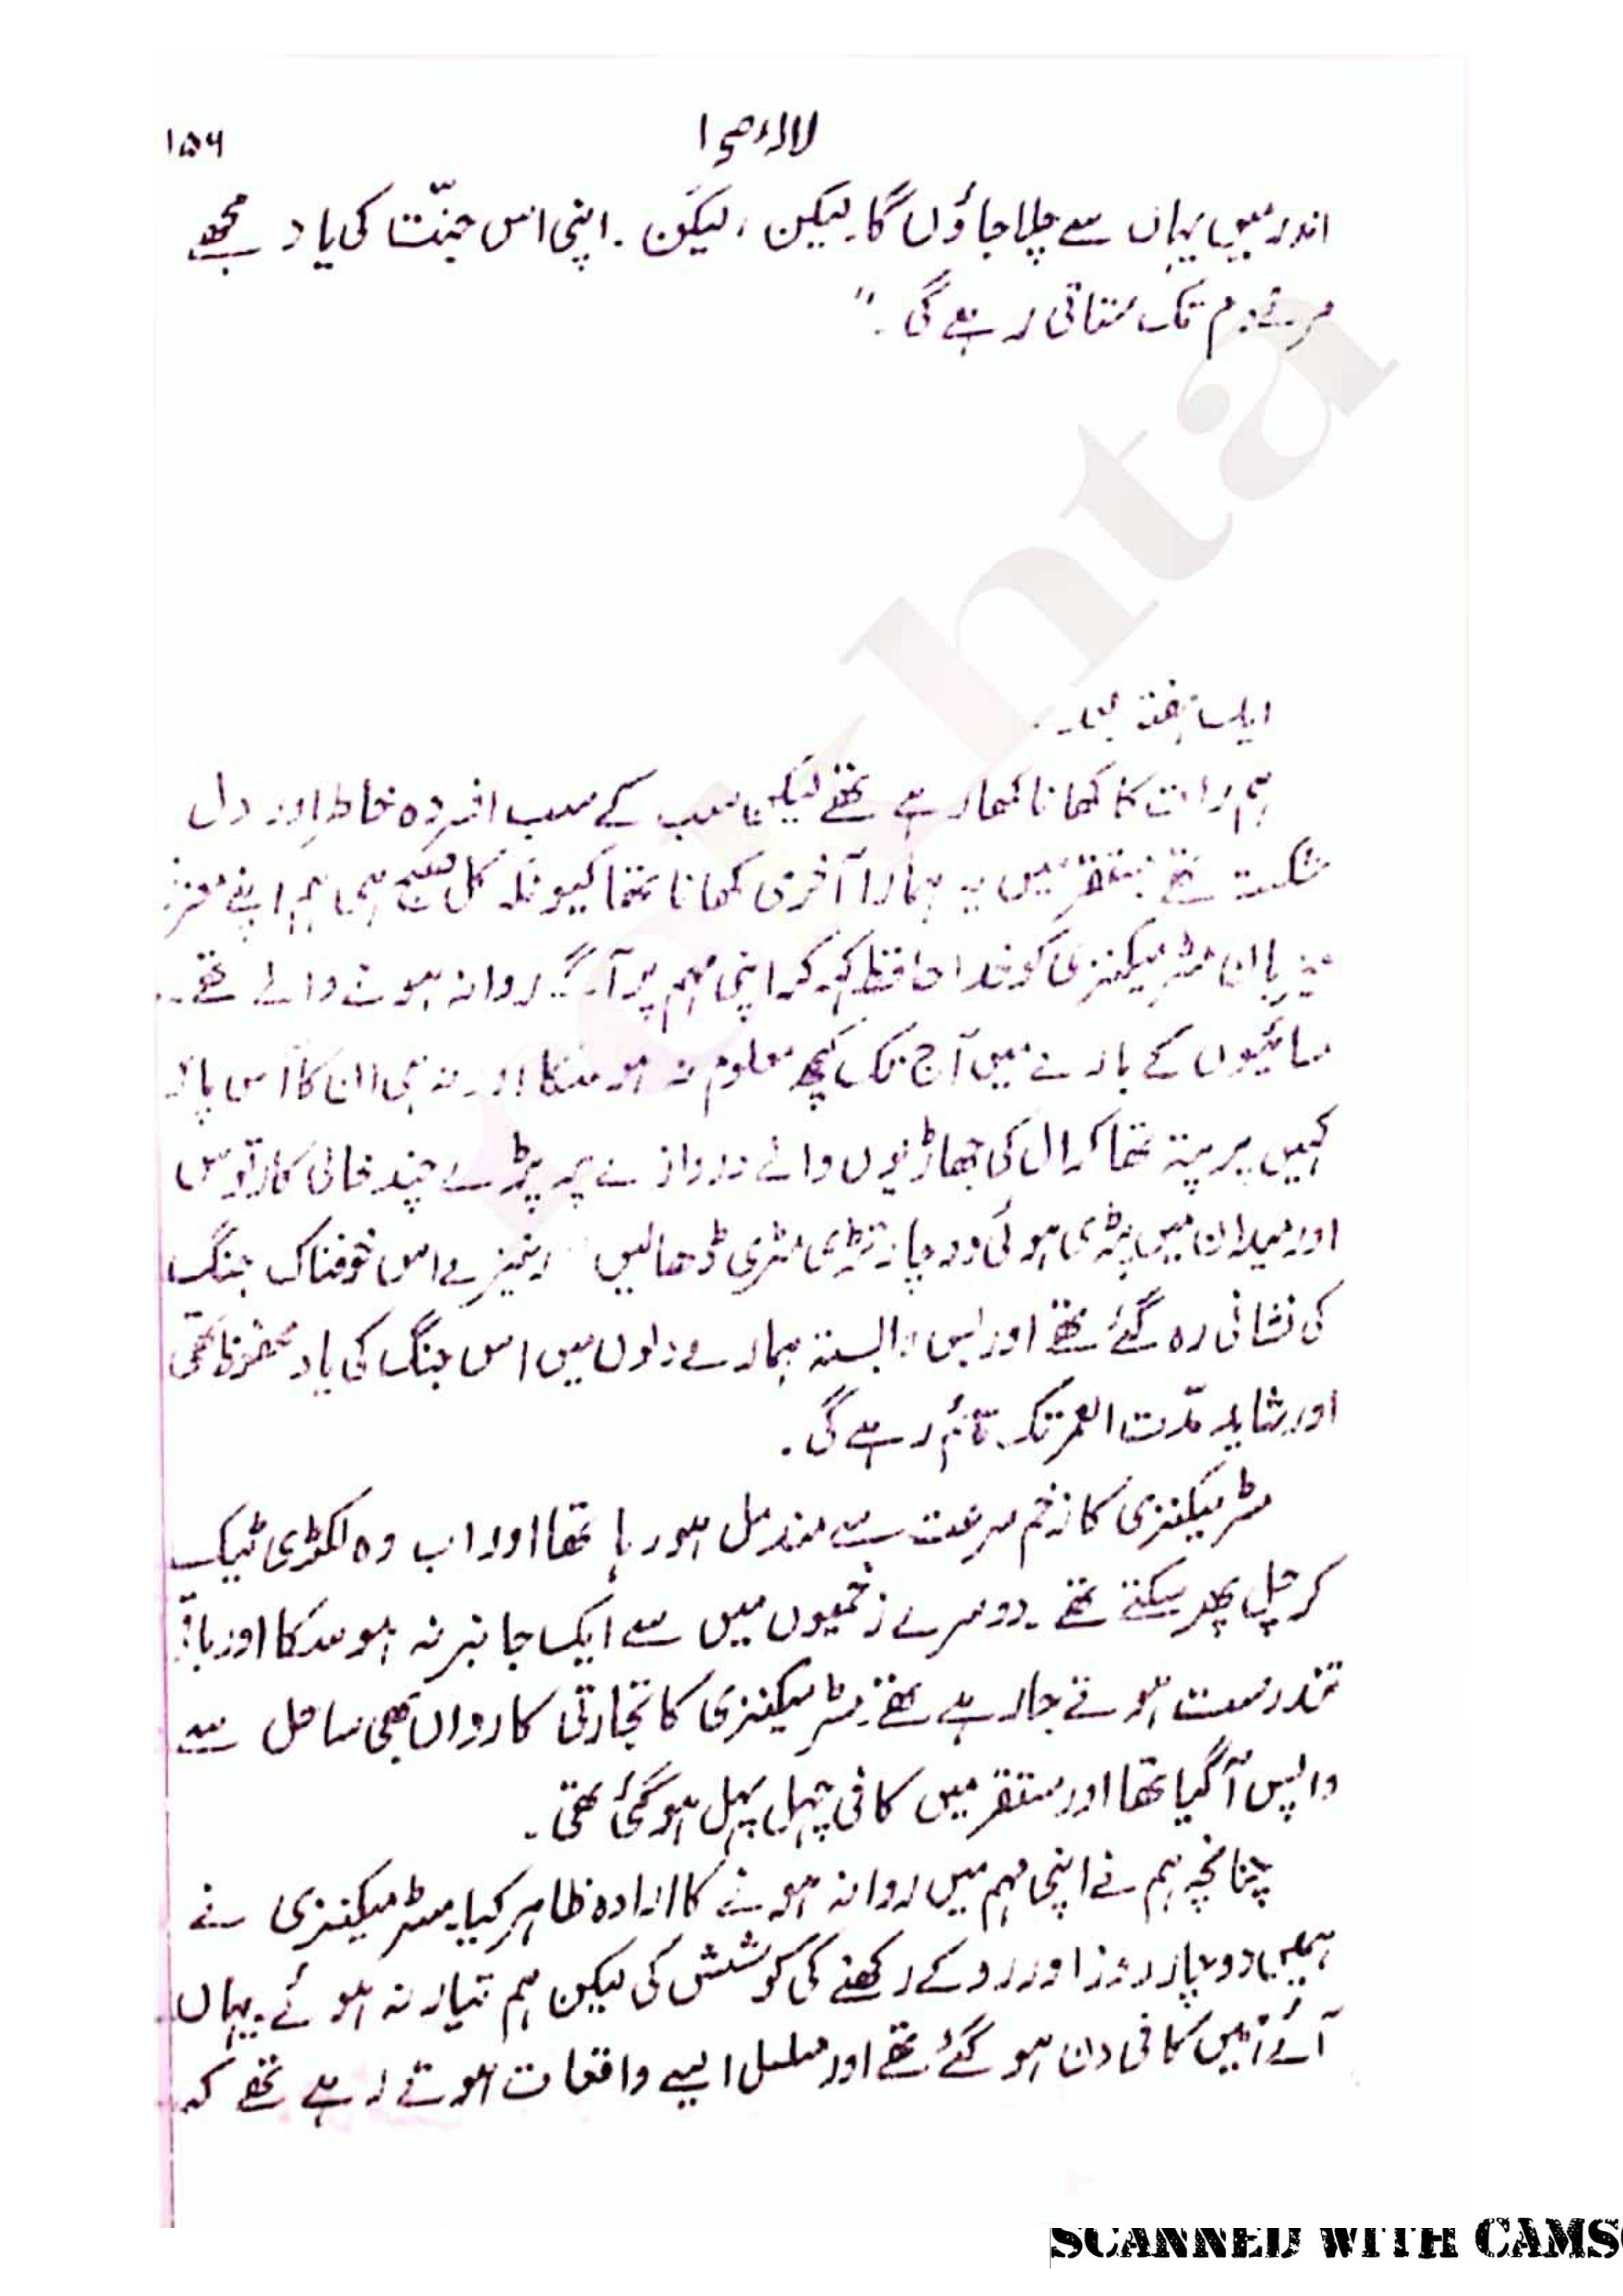 لالہ صحرا
۱۵۶
اندر میں یہاں سے چلا جاؤں گا۔ لیکن، لیکن۔ اپنی اس جنّت کی یاد مجھے
مرتے دم تک ستاتی رہے گی۔"
ایک ہفتہ بعد۔
ہم رات کا کھانا کھا رہے تھے لیکن سب کے سب افسردہ خاطر اور دل
شکستہ تھے مستقر میں یہ ہمارا آخری کھانا تھا کیونکہ کل صبح ہی ہم اپنے معزز
میزبان مسٹر میکنزی کو خدا حافظ کہہ کر اپنی مہم پر آگے روانہ ہونے والے تھے۔
سائیوں کے بارے میں آج تک کچھ معلوم نہ ہو سکا اور نہ ہی ان کا آس پاس
کہیں پر پتہ تھا کرال کی جھاڑیوں والے دروازے پر پڑے چند خالی کارتوس
اور میدان میں پڑی ہوئی دو چار تڑی مڑی ڈھالیں نیزے اس خوفناک جنگ
کی نشانی رہ گئے تھے اور بس البتہ ہمارے دلوں میں اس جنگ کی یاد محفوظ تھی
اور شاید مدّت العمر تک قائم رہے گی۔
مسٹر میکنزی کا زخم سرعت سے مندمل ہو رہا تھا اور اب وہ لکڑی ٹیک
کر چل پھر سکتے تھے۔ دوسرے زخمیوں میں سے ایک جانبر نہ ہو سکا اور باقی
تندرست ہوتے جا رہے تھے۔ مسٹر میکنزی کا تجارتی کارواں بھی ساحل سے
واپس آ گیا تھا اور مستقر میں کافی چہل پہل ہو گئی تھی۔
چنانچہ ہم نے اپنی مہم میں روانہ ہونے کا ارادہ ظاہر کیا۔ مسٹر میکنزی نے
ہمیں دو چار روز اور روکے رکھنے کی کوشش کی لیکن ہم تیار نہ ہوئے۔ یہاں
آئے ہمیں کافی دن ہو گئے تھے اور مسلسل ایسے واقعات ہوتے رہے تھے کہ
rekhta
SCANNED WITH CAMS